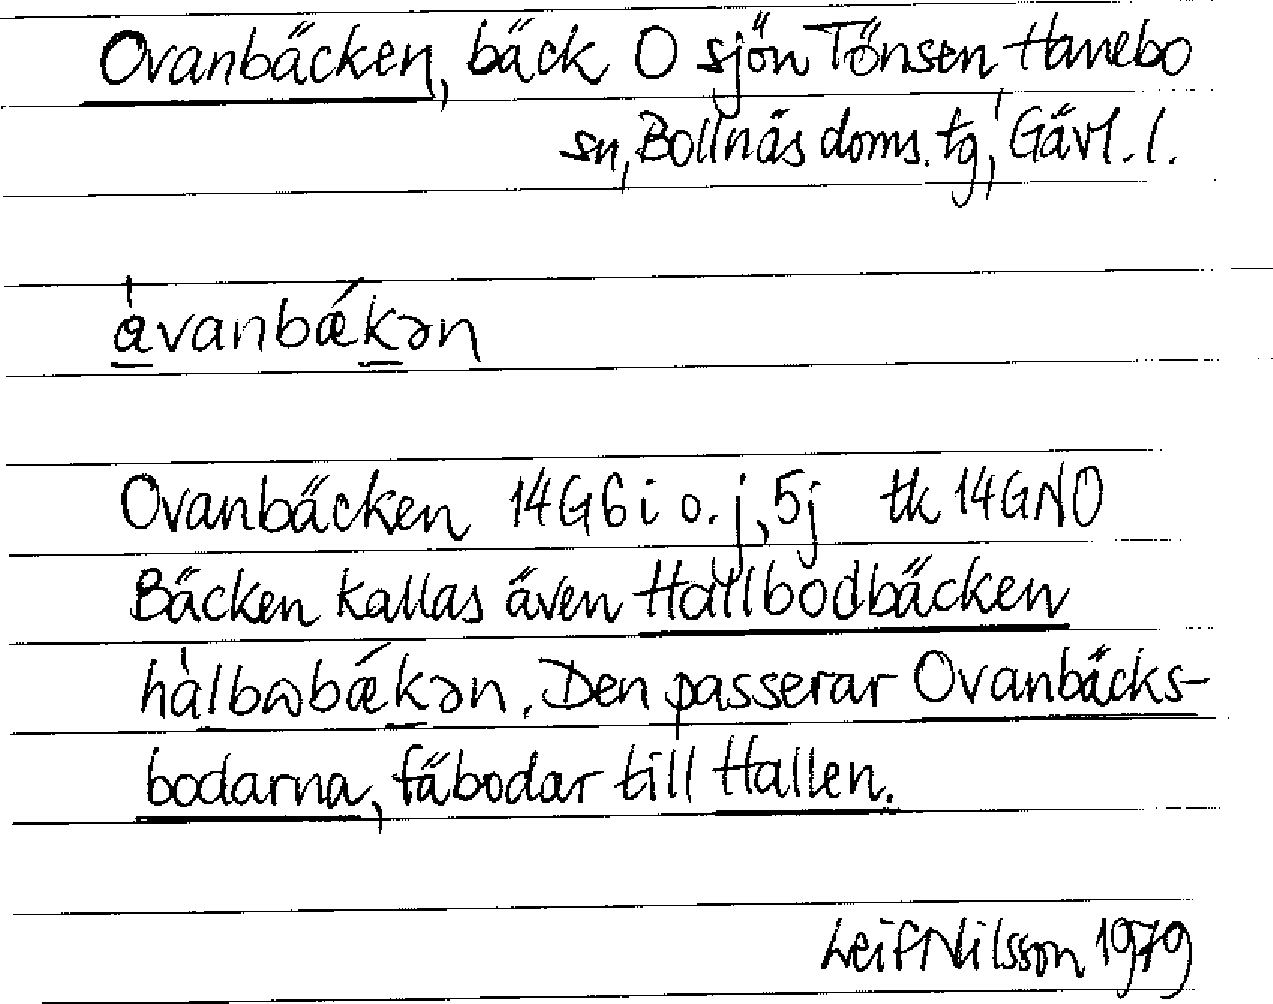 Ovanbäcken, bäck O sjön Tönsen, Hanebo
sn, Bollnäs doms. tg, Gävl. l.
àvanbǽkən
Ovanbäcken 14G6i o. j, 5j tk 14GNO
Bäcken kallas även Hallbodbäcken
hàlbωbǽkən. Den passerar Ovanbäcks-
bodarna, fäbodar till Hallen.
Leif Nilsson 1979